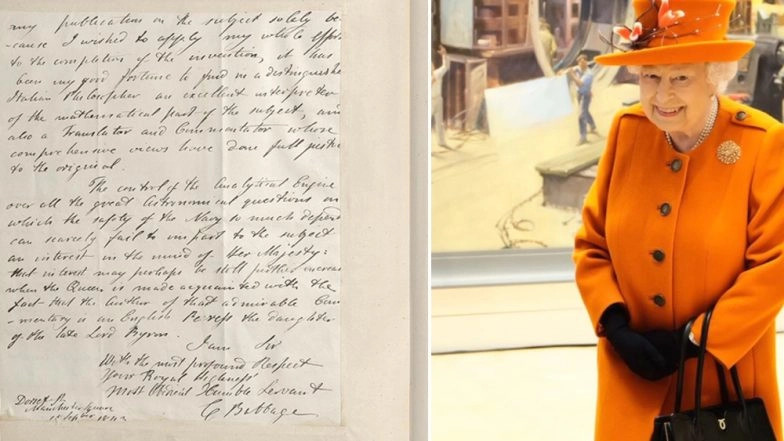 my publications on the subject solely be-
-cause I wished to apply my whole efforts
to the completion of the invention, it has
been my good fortune to find in a distinguished
Italian Philosopher an excellent interpreter
of the mathematical part of the subject, and
also a Translator and Commentator whose
comprehensive views have done full justice
to the original.
The control of the Analytical Engine
over all the great Astronomical questions on
which the safety of the Navy so much depend
can scarcely fail to impart to the subject
an interest in the mind of Her Majesty:
that interest may perhaps be still further increase
when the Queen is made acquainted with the
fact that the author of that admirable Com
-mentary is an English Peeress the daughter
of the late Lord Byron.
I am Sir
With the most profound Respect
Your Royal Highness'
Most Obedient Humble Servant
C Babbage
Dorset St
Manchester Square